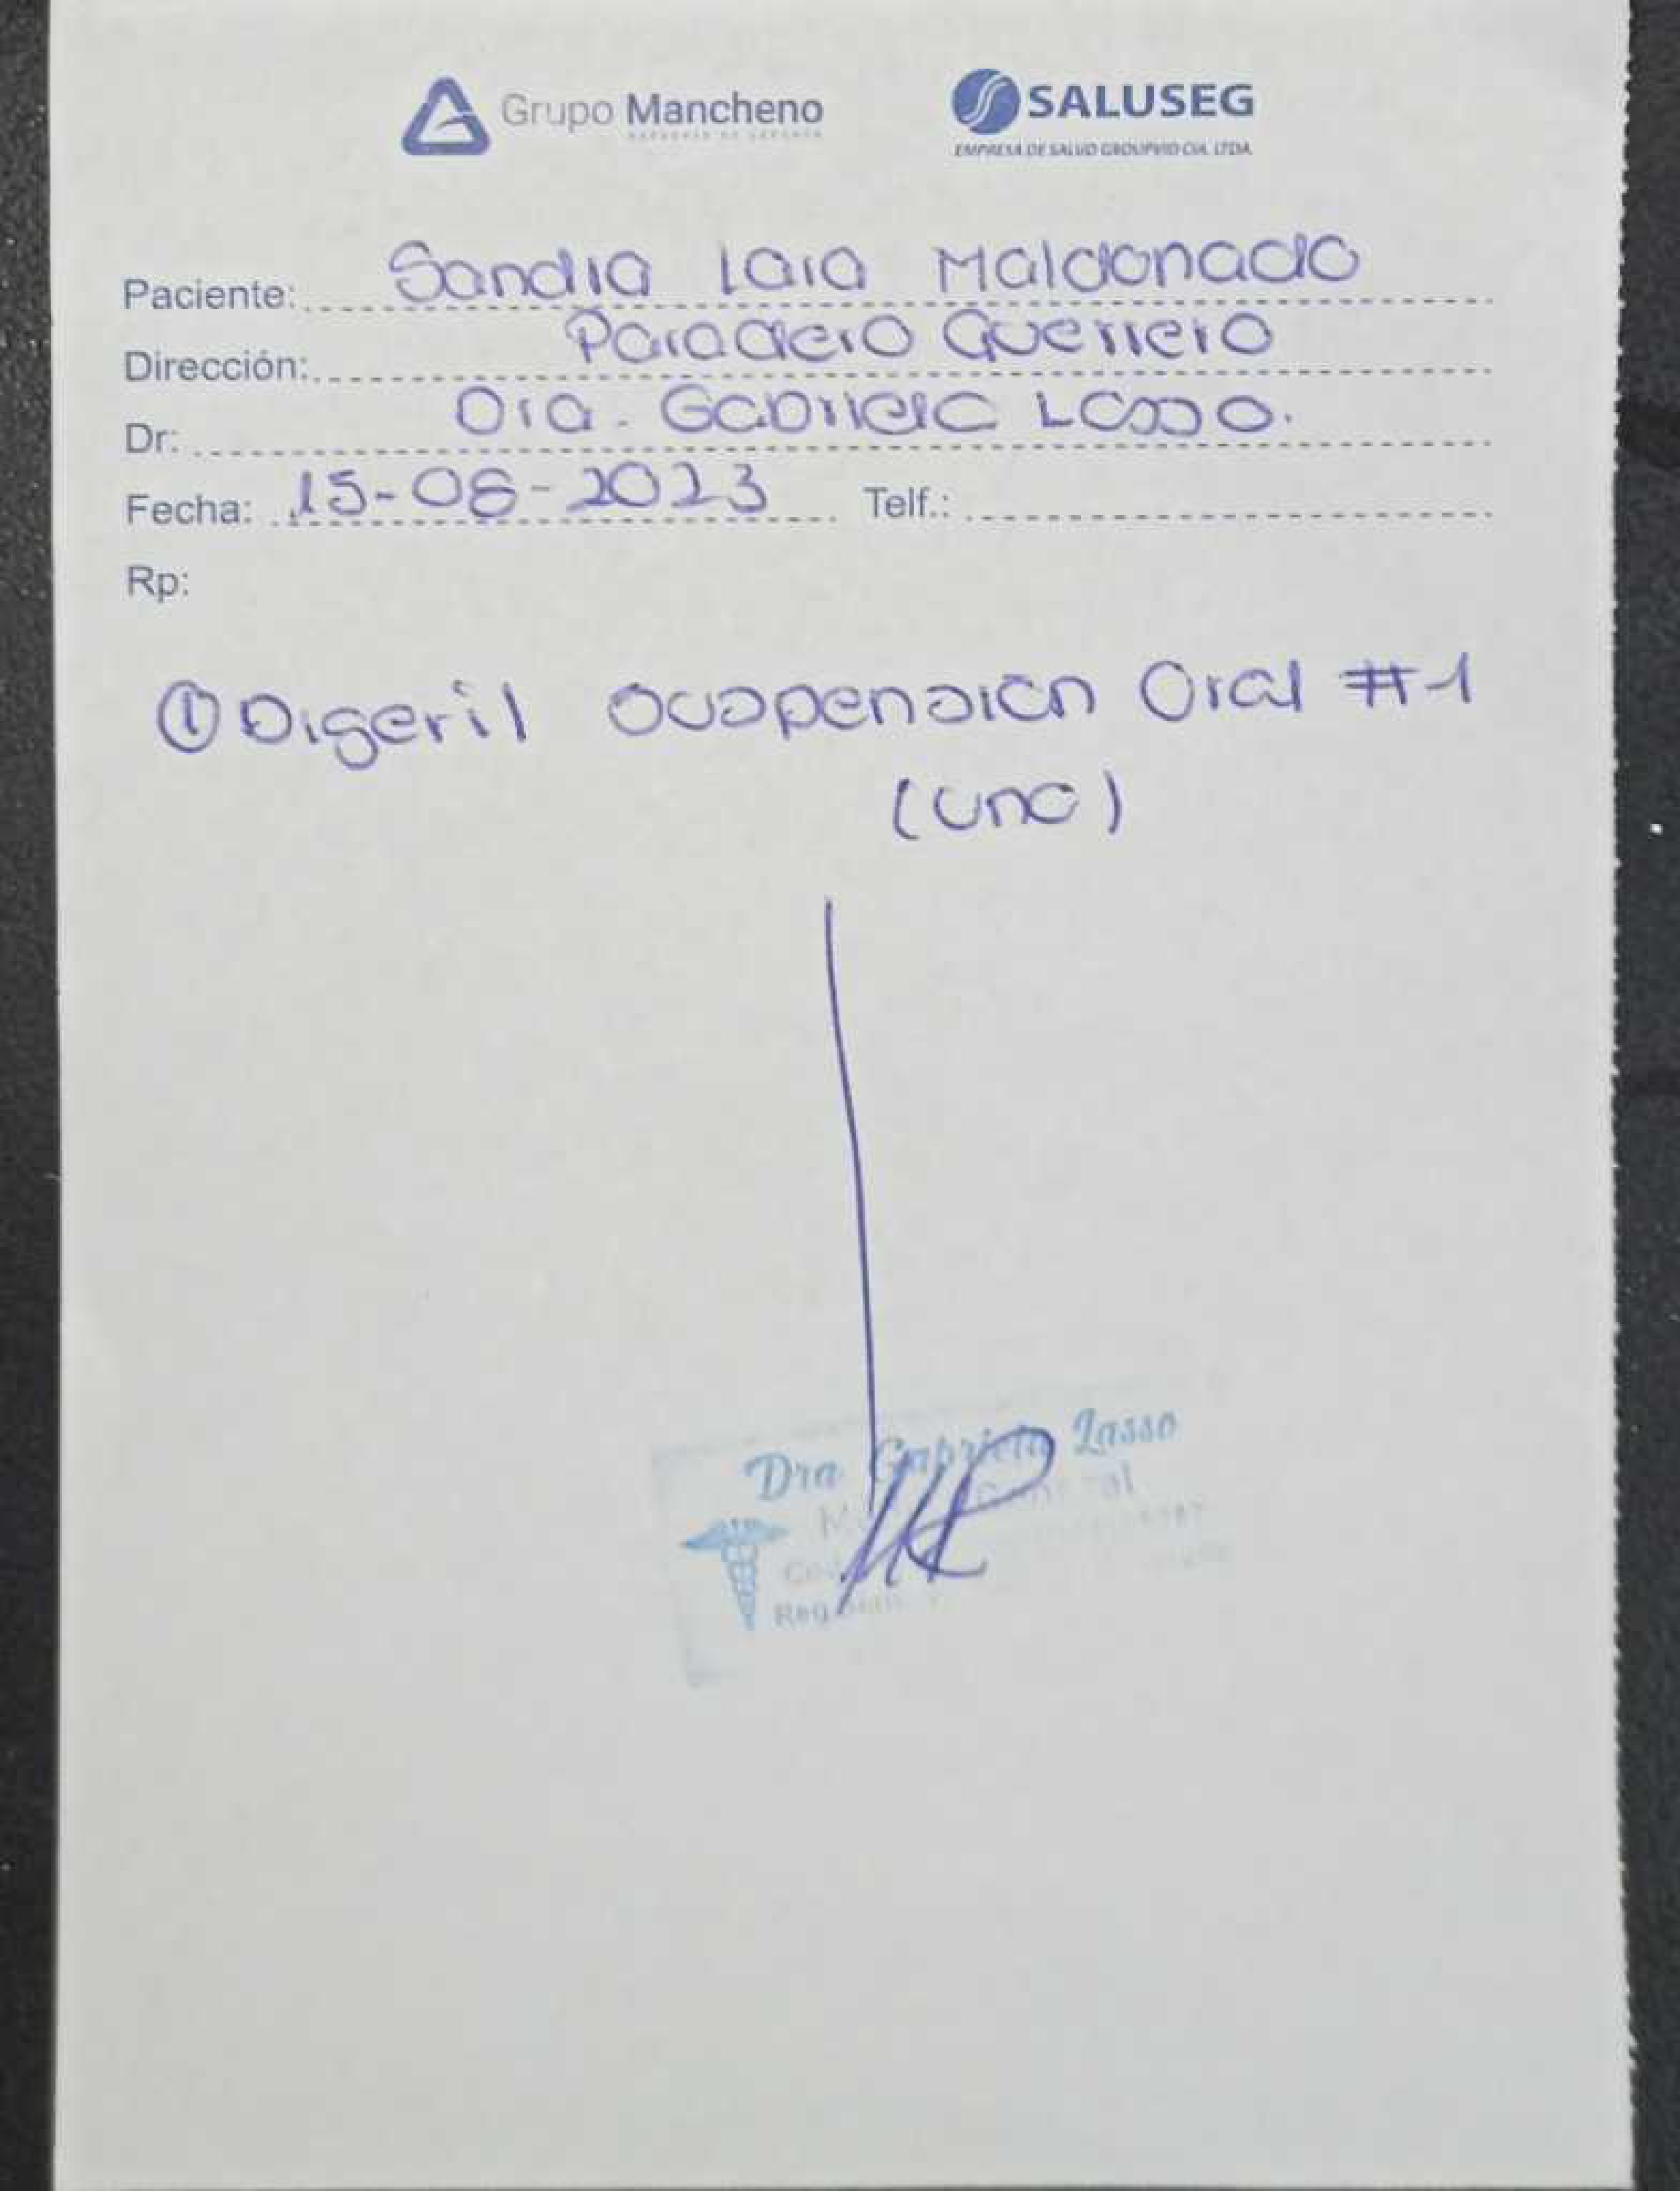 Grupo Mancheno
SALUSEG
EMPRESA DE SALUD GROUPVID CIA. LTDA.
Paciente: Sandra Lara Maldonado
Dirección: Paradero Guerrero
Dr: Dra. Gabriela Lasso.
Fecha: 15-08-2023 Telf.:
Rp:
① Digeril suspensión Oral #1
(una)
Dra Gabriela Lasso